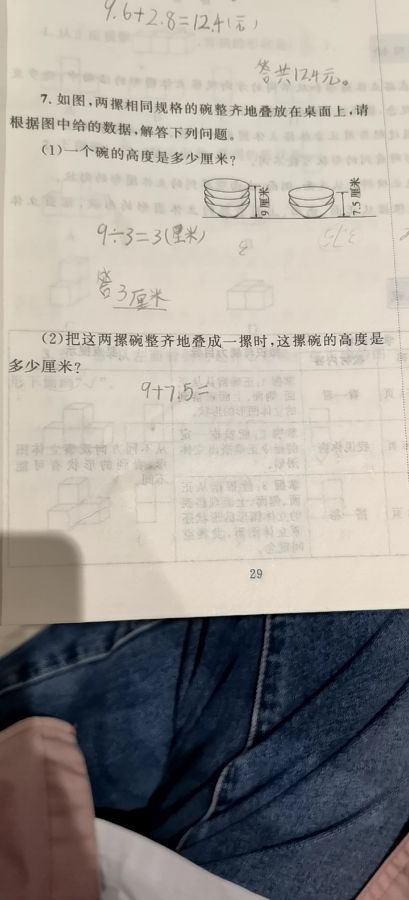 9.6+2.8=12.4(元)
答共12.4元。
7.如图,两摞相同规格的碗整齐地叠放在桌面上,请
根据图中给的数据,解答下列问题。
(1)一个碗的高度是多少厘米?
9厘米
7.5厘米
9÷3=3(厘米)
答3厘米
(2)把这两摞碗整齐地叠成一摞时,这摞碗的高度是
多少厘米?
9+7.5=
29